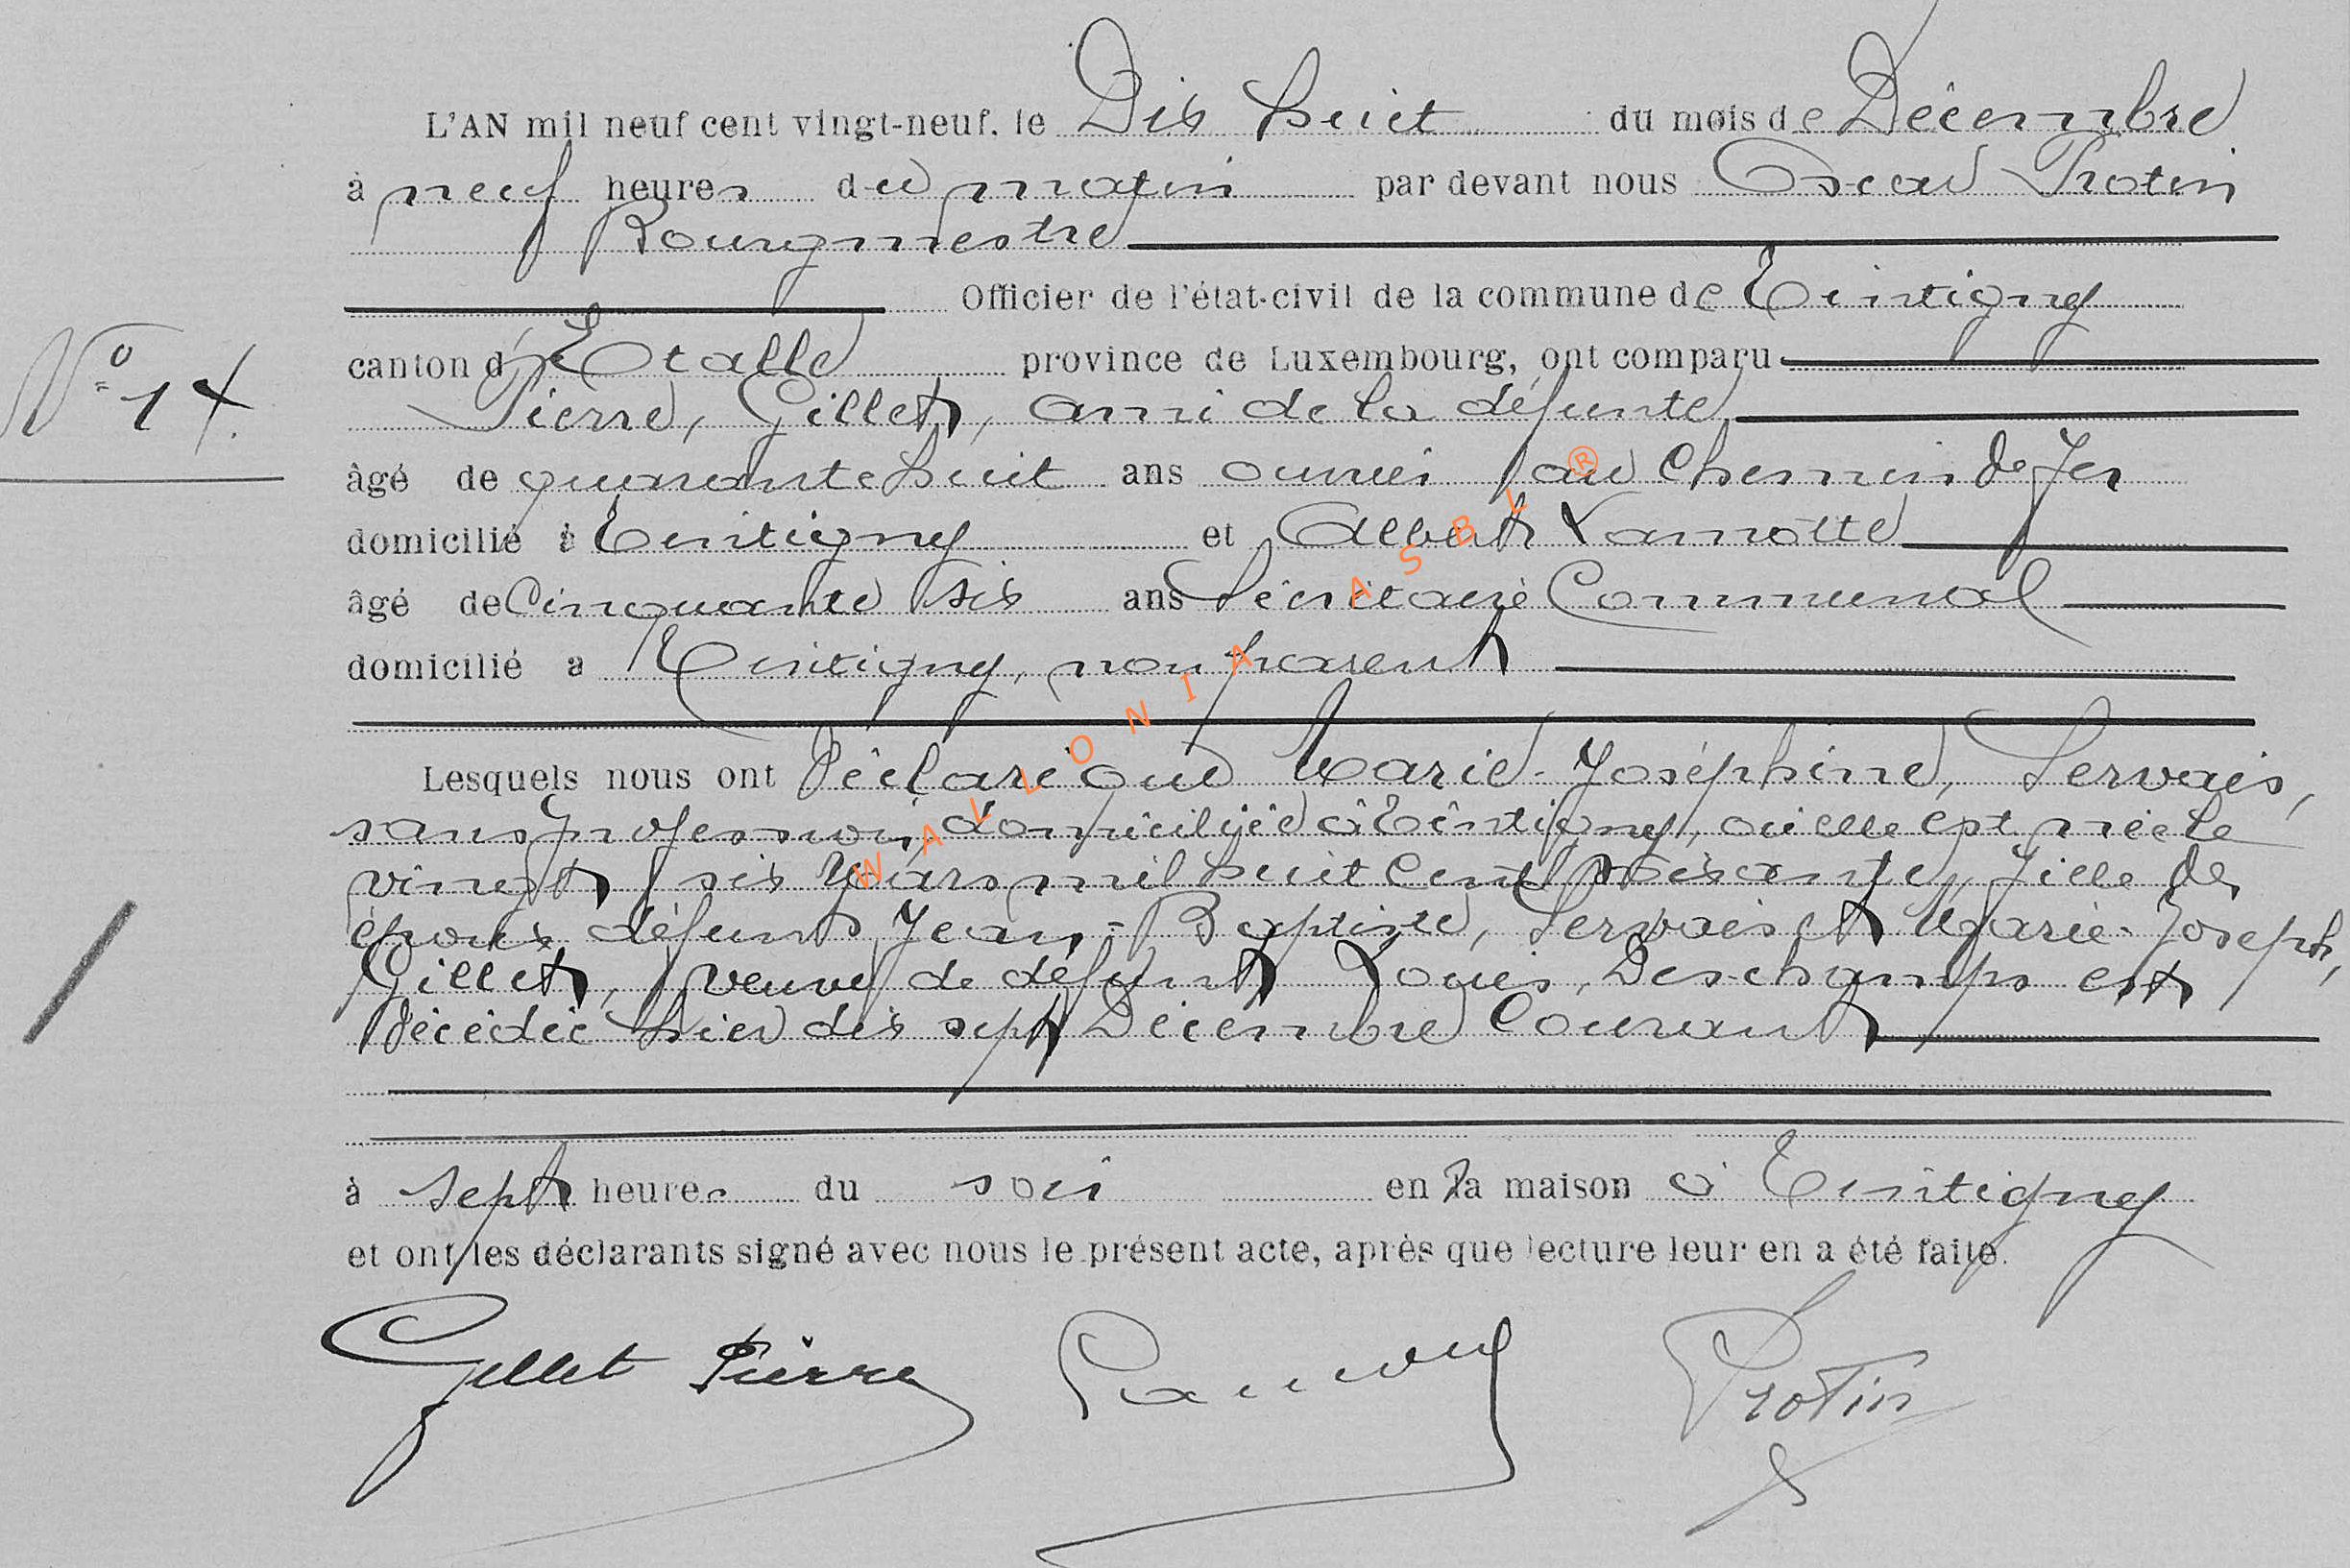 L'AN mil neuf cent vingt-neuf, le Dix huit du mois de Décembre
à neuf heures du matin par devant nous Oscar Protin
Bourgmestre
Officier de l'état-civil de la commune de Tintigny
canton d'Etalle province de Luxembourg, ont comparu
Pierre, Gillet, ami de la défunte
âgé de quarante huit ans ouvrier au Chemin de fer
domicilié à Tintigny et Albert Lamotte
âgé de Cinquante six ans Secrétaire Communal
domicilié a Tintigny, non parent
Lesquels nous ont déclaré que Marie-Joséphine, Servais,
sans profession, domiciliée à Tintigny, où elle est née le
vingt six Mars mil huit cent soixante, fille des
époux défunts Jean-Baptiste, Servais et Marie-Joseph,
Gillet, veuve de défunt Louis, Deschamps est
décédée hier dix sept Décembre Courant
à sept heures du soir en la maison à Tintigny
et ont les déclarants signé avec nous le présent acte, après que lecture leur en a été faite.
Gillet Pierre Protin
N° 14
WALLONIA ASBL ®